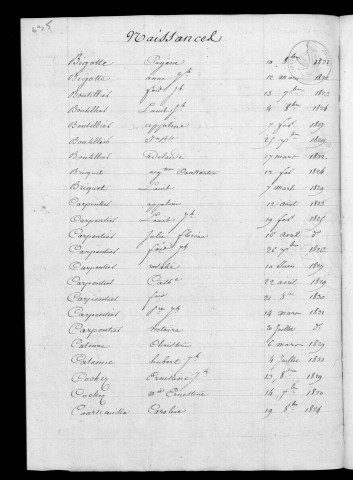 Naissances
Bigotte Eugène 10 8bre 1822
Bigotte anne Jh 12 mars 1820
Boutillies fois Jh 15 9bre 1823
Boutillies Louis Jh 4 8bre 1824
Boutillies appoline 7 fev 1819
Boutillies 25 1829
Boutillies adelaide 17 mars 1822
Briquet aug.ne Constantin 12 fev 1824
Briquet Louis 7 mars 1829
Carpentier appoline 12 aout 1823
Carpentier Louis Jh 19 fev 1825
Carpentier Julie Florine 16 avril do
Carpentier fois Jh 26 1826
Carpentier rosalie 10 Juin 1827
Carpentier Cathe 22 avril 1829
Carpentier fois 21 8bre 1830
Carpentier Jh 14 mars 1821
Carpentier Victoire 20 Juillet do
Catenne Christine 6 mars 1829
Catenne hubert Jh 4 Juillet 1831
Cochez Ernestine Jh 13 8bre 1829
Cochez md Ernestine 14 7bre 1830
Courteville Caroline 19 8bre 1828